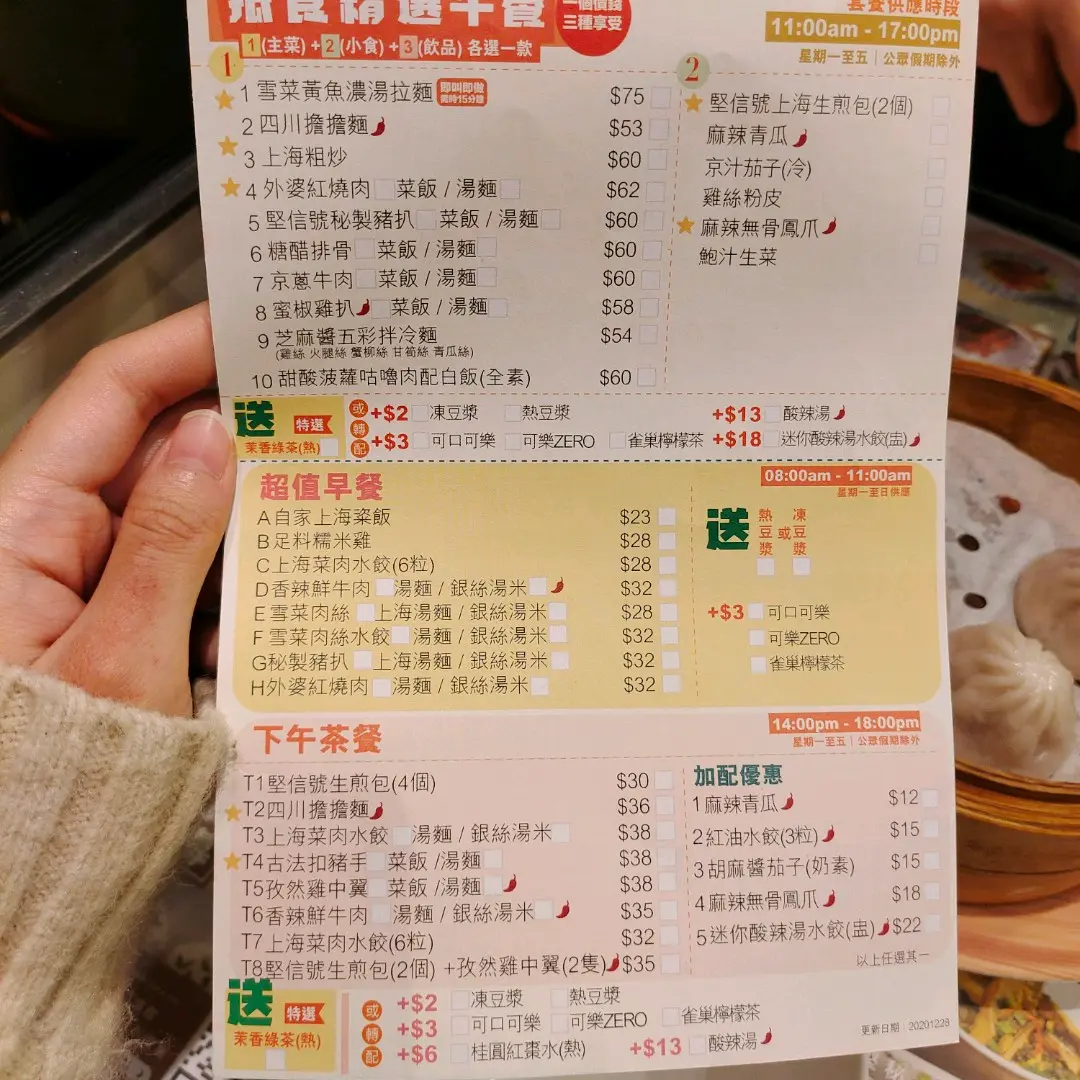 抵食精選午餐
一個價錢
三種享受
套餐供應時段
11:00am - 17:00pm
星期一至五 | 公眾假期除外
1(主菜)+2(小食)+3(飲品)各選一款
1
1 雪菜黃魚濃湯拉麵 即叫即做 需時15分鐘 $75
2 四川擔擔麵 $53
3 上海粗炒 $60
4 外婆紅燒肉 菜飯 / 湯麵 $62
5 堅信號秘製豬扒 菜飯 / 湯麵 $60
6 糖醋排骨 菜飯 / 湯麵 $60
7 京蔥牛肉 菜飯 / 湯麵 $60
8 蜜椒雞扒 菜飯 / 湯麵 $58
9 芝麻醬五彩拌冷麵 $54
(雞絲 火腿絲 蟹柳絲 甘筍絲 青瓜絲)
10 甜酸菠蘿咕嚕肉配白飯(全素) $60
2
堅信號上海生煎包(2個)
麻辣青瓜
京汁茄子(冷)
雞絲粉皮
麻辣無骨鳳爪
鮑汁生菜
送 特選
茉香綠茶(熱)
或轉配
+$2 凍豆漿 熱豆漿 +$13 酸辣湯
+$3 可口可樂 可樂ZERO 雀巢檸檬茶 +$18 迷你酸辣湯水餃(盅)
超值早餐
08:00am - 11:00am
星期一至日供應
A自家上海粢飯 $23
B足料糯米雞 $28
C上海菜肉水餃(6粒) $28
D香辣鮮牛肉 湯麵 / 銀絲湯米 $32
E雪菜肉絲 上海湯麵 / 銀絲湯米 $28
F雪菜肉絲水餃 湯麵 / 銀絲湯米 $32
G秘製豬扒 上海湯麵 / 銀絲湯米 $32
H外婆紅燒肉 湯麵 / 銀絲湯米 $32
送 熱豆漿 或 凍豆漿
+$3 可口可樂
可樂ZERO
雀巢檸檬茶
下午茶餐
14:00pm - 18:00pm
星期一至五 | 公眾假期除外
T1堅信號生煎包(4個) $30
T2四川擔擔麵 $36
T3上海菜肉水餃 湯麵 / 銀絲湯米 $38
T4古法扣豬手 菜飯 /湯麵 $38
T5孜然雞中翼 菜飯 /湯麵 $38
T6香辣鮮牛肉 湯麵 / 銀絲湯米 $35
T7上海菜肉水餃(6粒) $32
T8堅信號生煎包(2個) +孜然雞中翼(2隻) $35
加配優惠
1麻辣青瓜 $12
2紅油水餃(3粒) $15
3胡麻醬茄子(奶素) $15
4麻辣無骨鳳爪 $18
5迷你酸辣湯水餃(盅) $22
以上任選其一
送 特選
茉香綠茶(熱)
或轉配
+$2 凍豆漿 熱豆漿
+$3 可口可樂 可樂ZERO 雀巢檸檬茶
+$6 桂圓紅棗水(熱) +$13 酸辣湯
更新日期：20201228